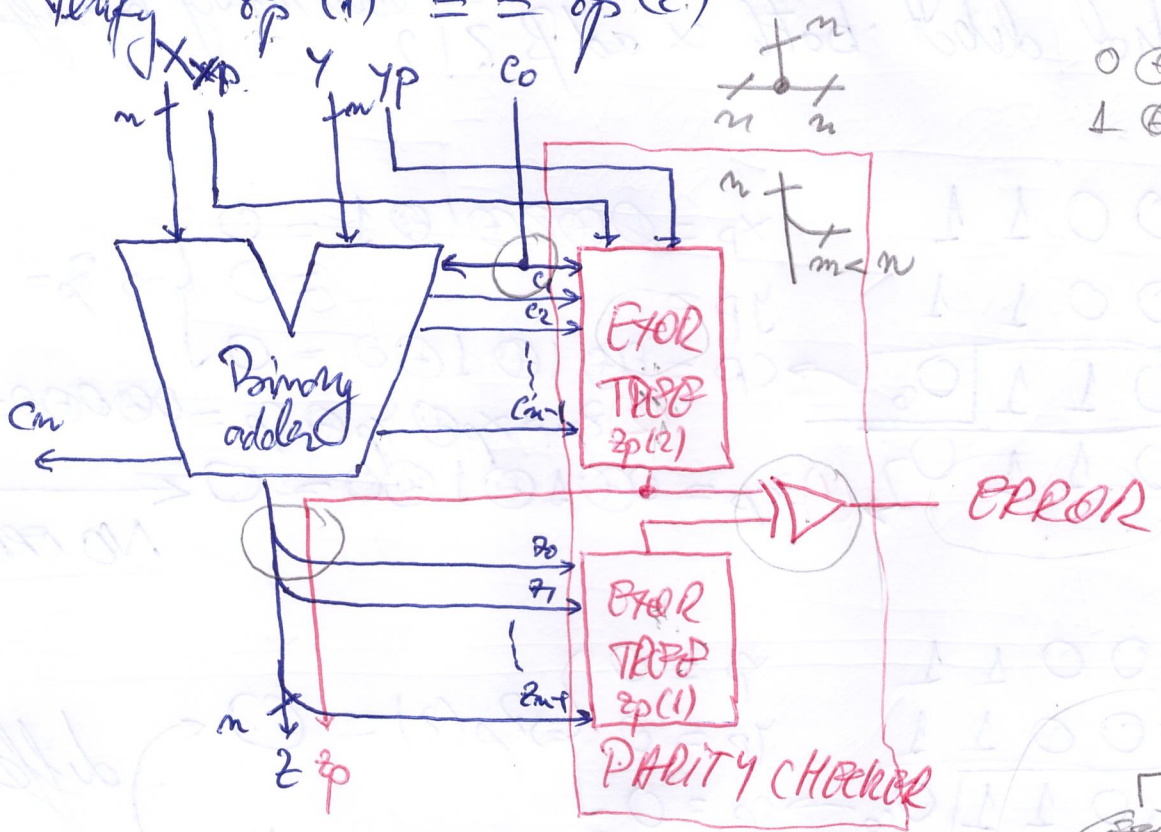 Verify zp(1) == zp(2)
X xp Y yp c0
n n
n
n n
0 ⊕
1 ⊕
n
m < n
c1
c2
Binary
adder
cn-1
cn
EXOR
TREE
zp(2)
ERROR
z0
z1
zn-1
EXOR
TREE
zp(1)
n
Z zp
PARITY CHECKER